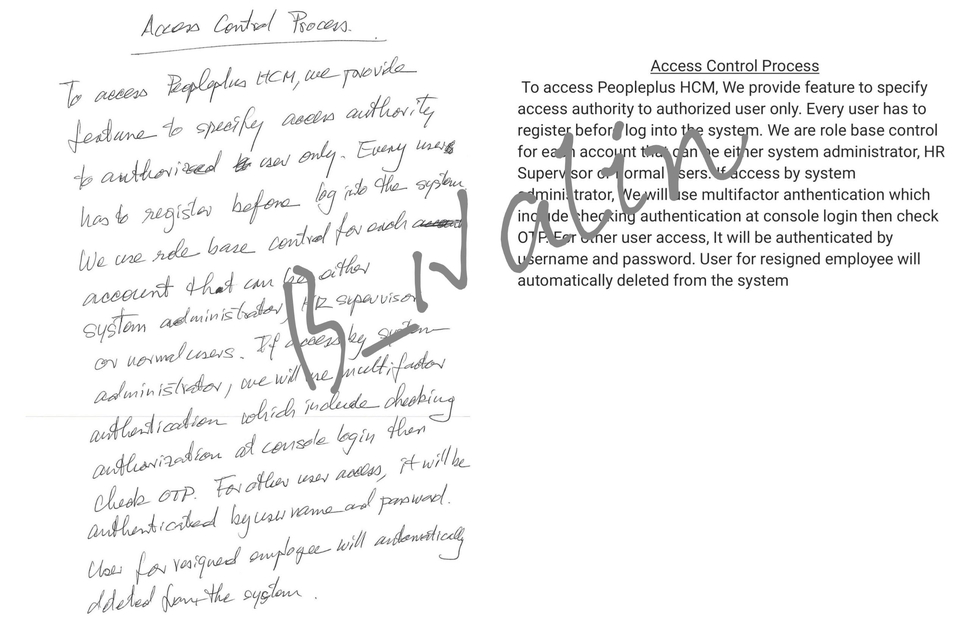 Access Control Process.
To access Peopleplus HCM, we provide
feature to specify access authority
to authorized user only. Every users
has to register before log into the system
We use role base control for each
account that can be either
system administrator, HR supervisor
or normal users. If access by system
administrator, we will use multifactor
authentication which include checking
authorization at console login then
check OTP. For other user access, it will be
authenticated by username and password.
User for resigned employee will automatically
deleted from the system.
Access Control Process
To access Peopleplus HCM, We provide feature to specify
access authority to authorized user only. Every user has to
register before log into the system. We are role base control
for each account that can be either system administrator, HR
Supervisor or normal users. If access by system
administrator, We will use multifactor anthentication which
include checking authentication at console login then check
OTP. For other user access, It will be authenticated by
username and password. User for resigned employee will
automatically deleted from the system
B-Nalin